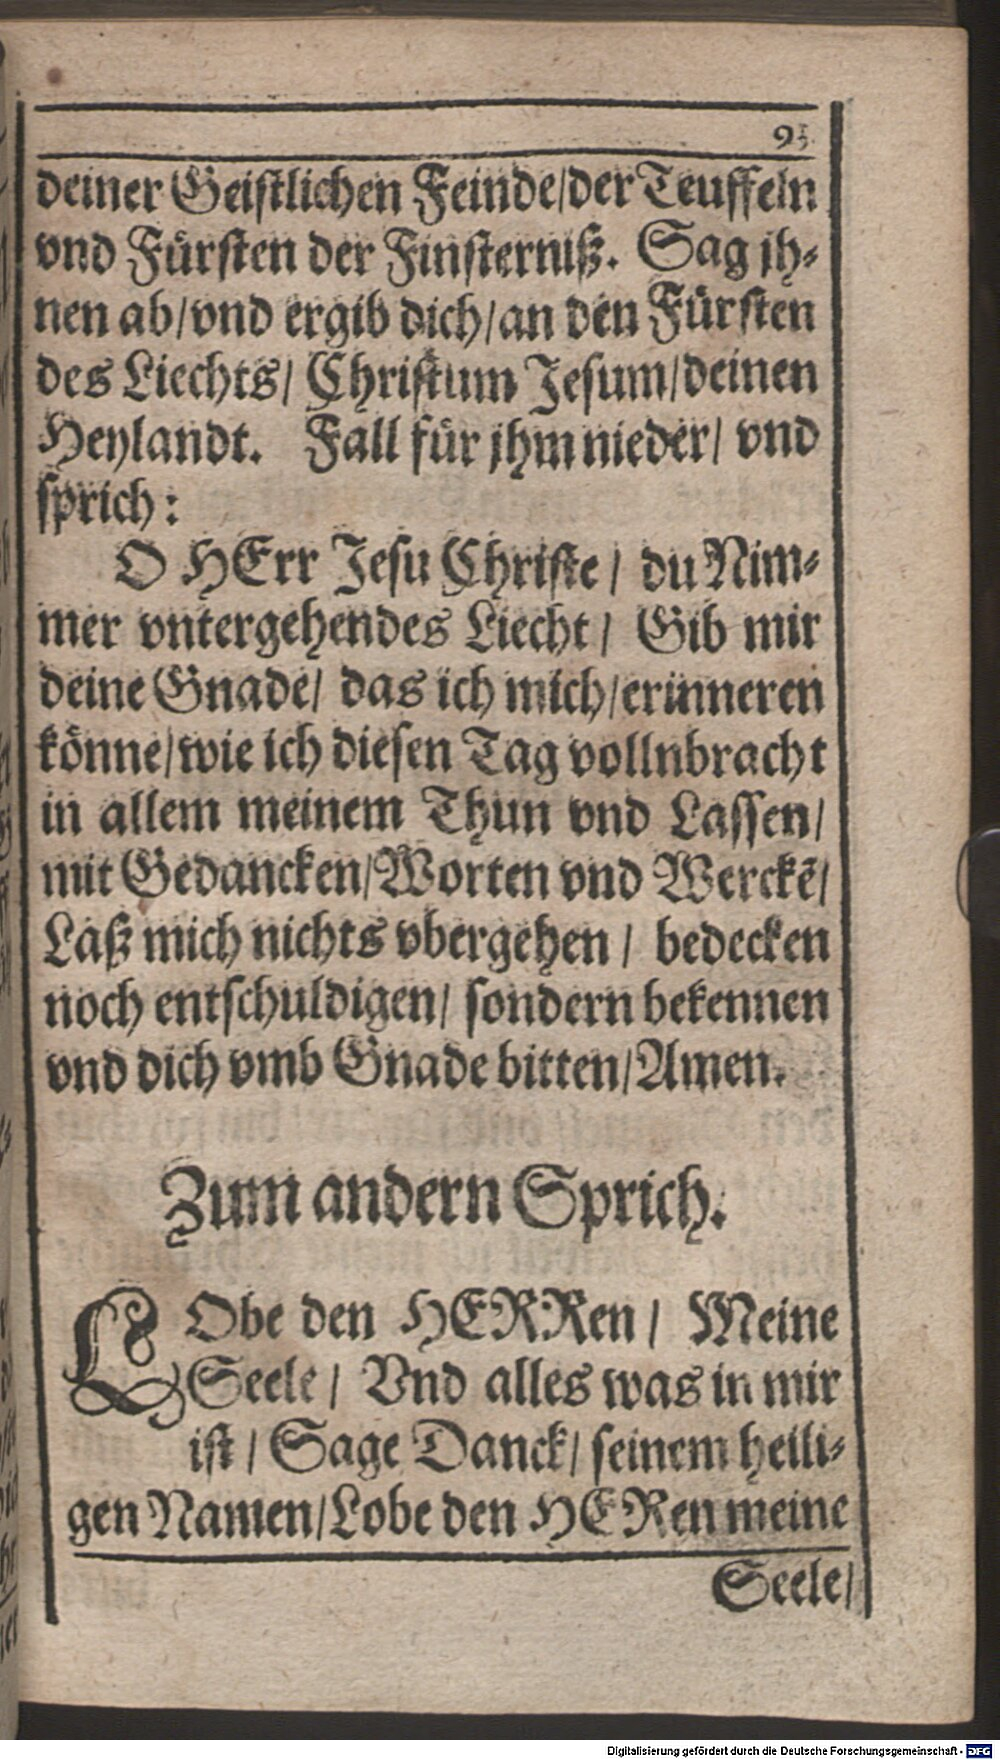 deiner Geistlichen Feinde/der Teuffeln
vnd Fürsten der Finsterniß. Sag jh-
nen ab/vnd ergib dich/an den Fürsten
des Liechts/ Christum Jesum/deinen
Heylandt. Fall für jhm nieder/ vnd
sprich:
O HErr Jesu Christe / du Nim-
mer vntergehendes Liecht/ Gib mir
deine Gnade/ das ich mich/erinneren
könne/wie ich diesen Tag vollnbracht
in allem meinem Thun vnd Lassen/
mit Gedancken/Worten vnd Werckē/
Laß mich nichts vbergehen / bedecken
noch entschuldigen/ sondern bekennen
vnd dich vmb Gnade bitten/Amen.
Zum andern Sprich.
LObe den HERRen / Meine
Seele / Vnd alles was in mir
ist / Sage Danck/ seinem heili-
gen Namen/Lobe den HERen meine
Seele/
Digitalisierung gefördert durch die Deutsche Forschungsgemeinschaft - DFG